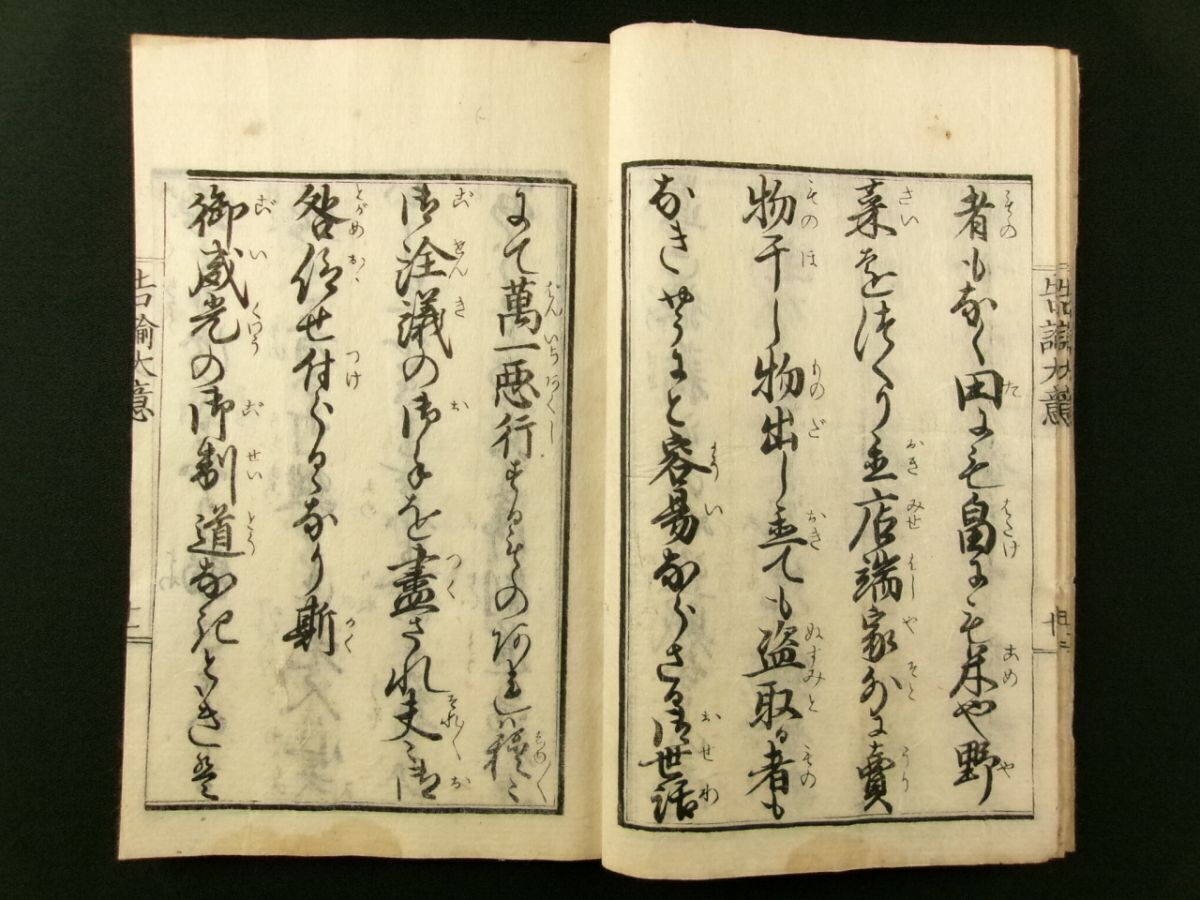 者もなく田にも畠にも米や野
菜をつくり置店端家外に賣
物干し物出し置ても盗取る者も
なきやうにと容易ならさる御世話
にて萬一悪行するものあれハ種々
御詮議の御手を盡され夫々御
咎仰せ付らるゝなり斯
御威光の御制道なきときは
告諭大意
告諭大意